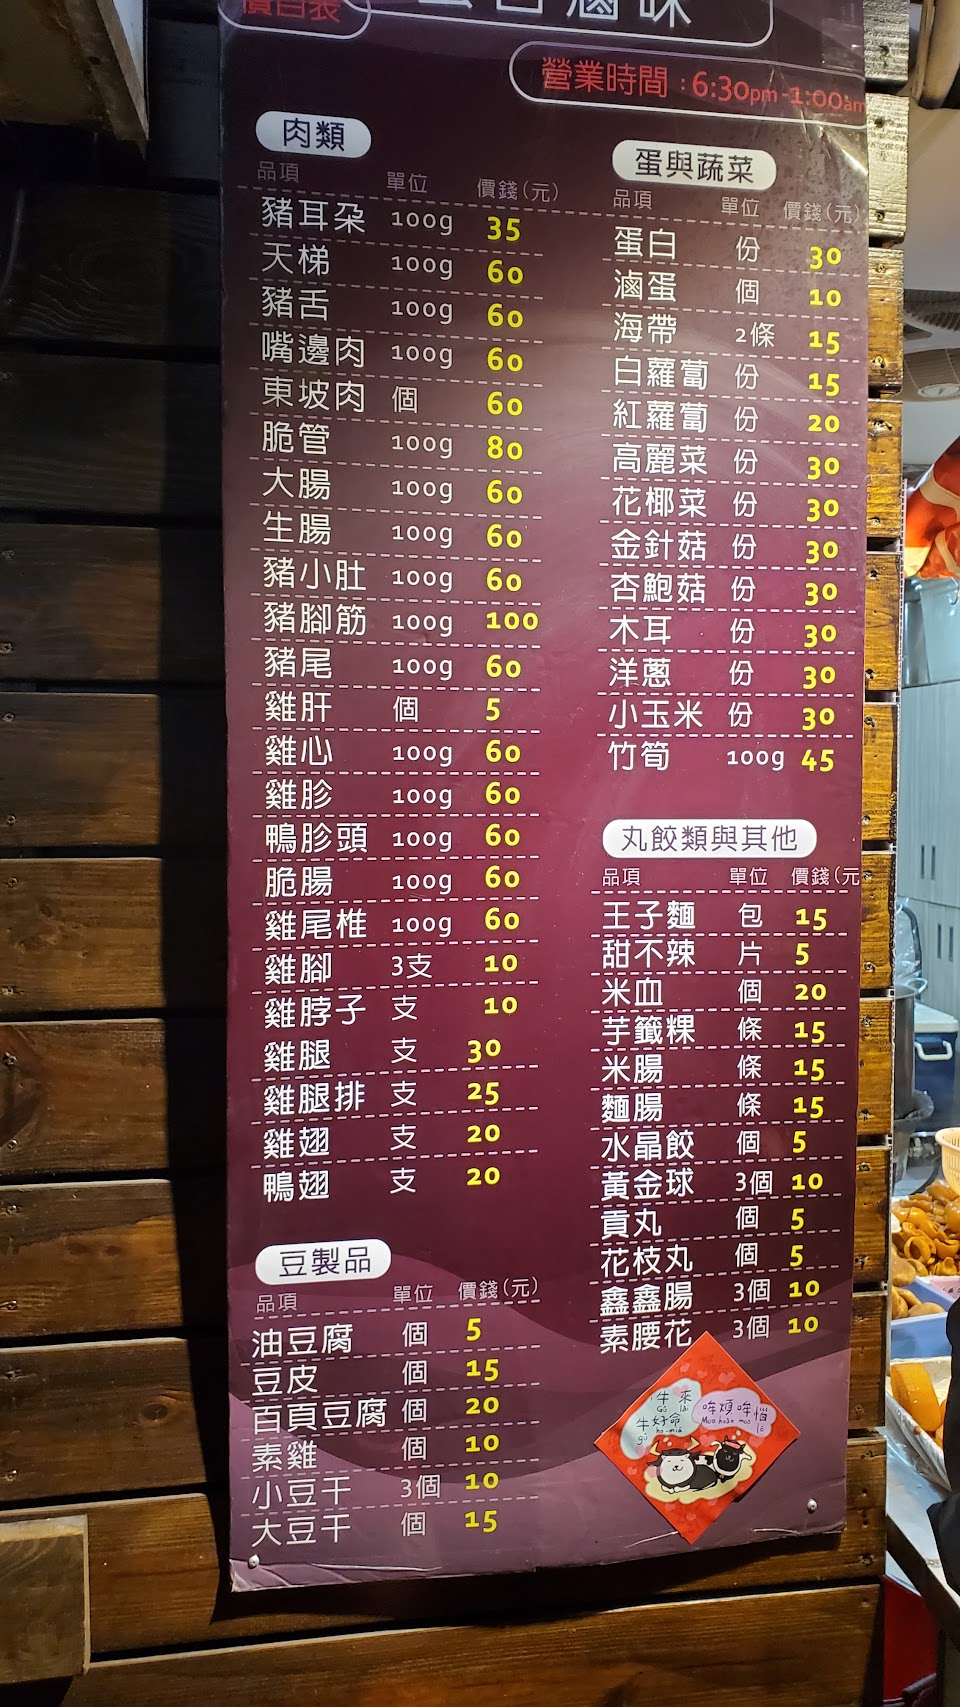 價目表
滷味
營業時間：6:30pm-1:00am
肉類
品項 單位 價錢(元)
豬耳朵 100g 35
天梯 100g 60
豬舌 100g 60
嘴邊肉 100g 60
東坡肉 個 60
脆管 100g 80
大腸 100g 60
生腸 100g 60
豬小肚 100g 60
豬腳筋 100g 100
豬尾 100g 60
雞肝 個 5
雞心 100g 60
雞胗 100g 60
鴨胗頭 100g 60
脆腸 100g 60
雞尾椎 100g 60
雞腳 3支 10
雞脖子 支 10
雞腿 支 30
雞腿排 支 25
雞翅 支 20
鴨翅 支 20
豆製品
品項 單位 價錢(元)
油豆腐 個 5
豆皮 個 15
百頁豆腐 個 20
素雞 個 10
小豆干 3個 10
大豆干 個 15
蛋與蔬菜
品項 單位 價錢(元)
蛋白 份 30
滷蛋 個 10
海帶 2條 15
白蘿蔔 份 15
紅蘿蔔 份 20
高麗菜 份 30
花椰菜 份 30
金針菇 份 30
杏鮑菇 份 30
木耳 份 30
洋蔥 份 30
小玉米 份 30
竹筍 100g 45
丸餃類與其他
品項 單位 價錢(元
王子麵 包 15
甜不辣 片 5
米血 個 20
芋籤粿 條 15
米腸 條 15
麵腸 條 15
水晶餃 個 5
黃金球 3個 10
貢丸 個 5
花枝丸 個 5
鑫鑫腸 3個 10
素腰花 3個 10
牛來
Gû lâi
牛好命
gû hó-miā
哞煩哞惱
Moo hoân moo ló